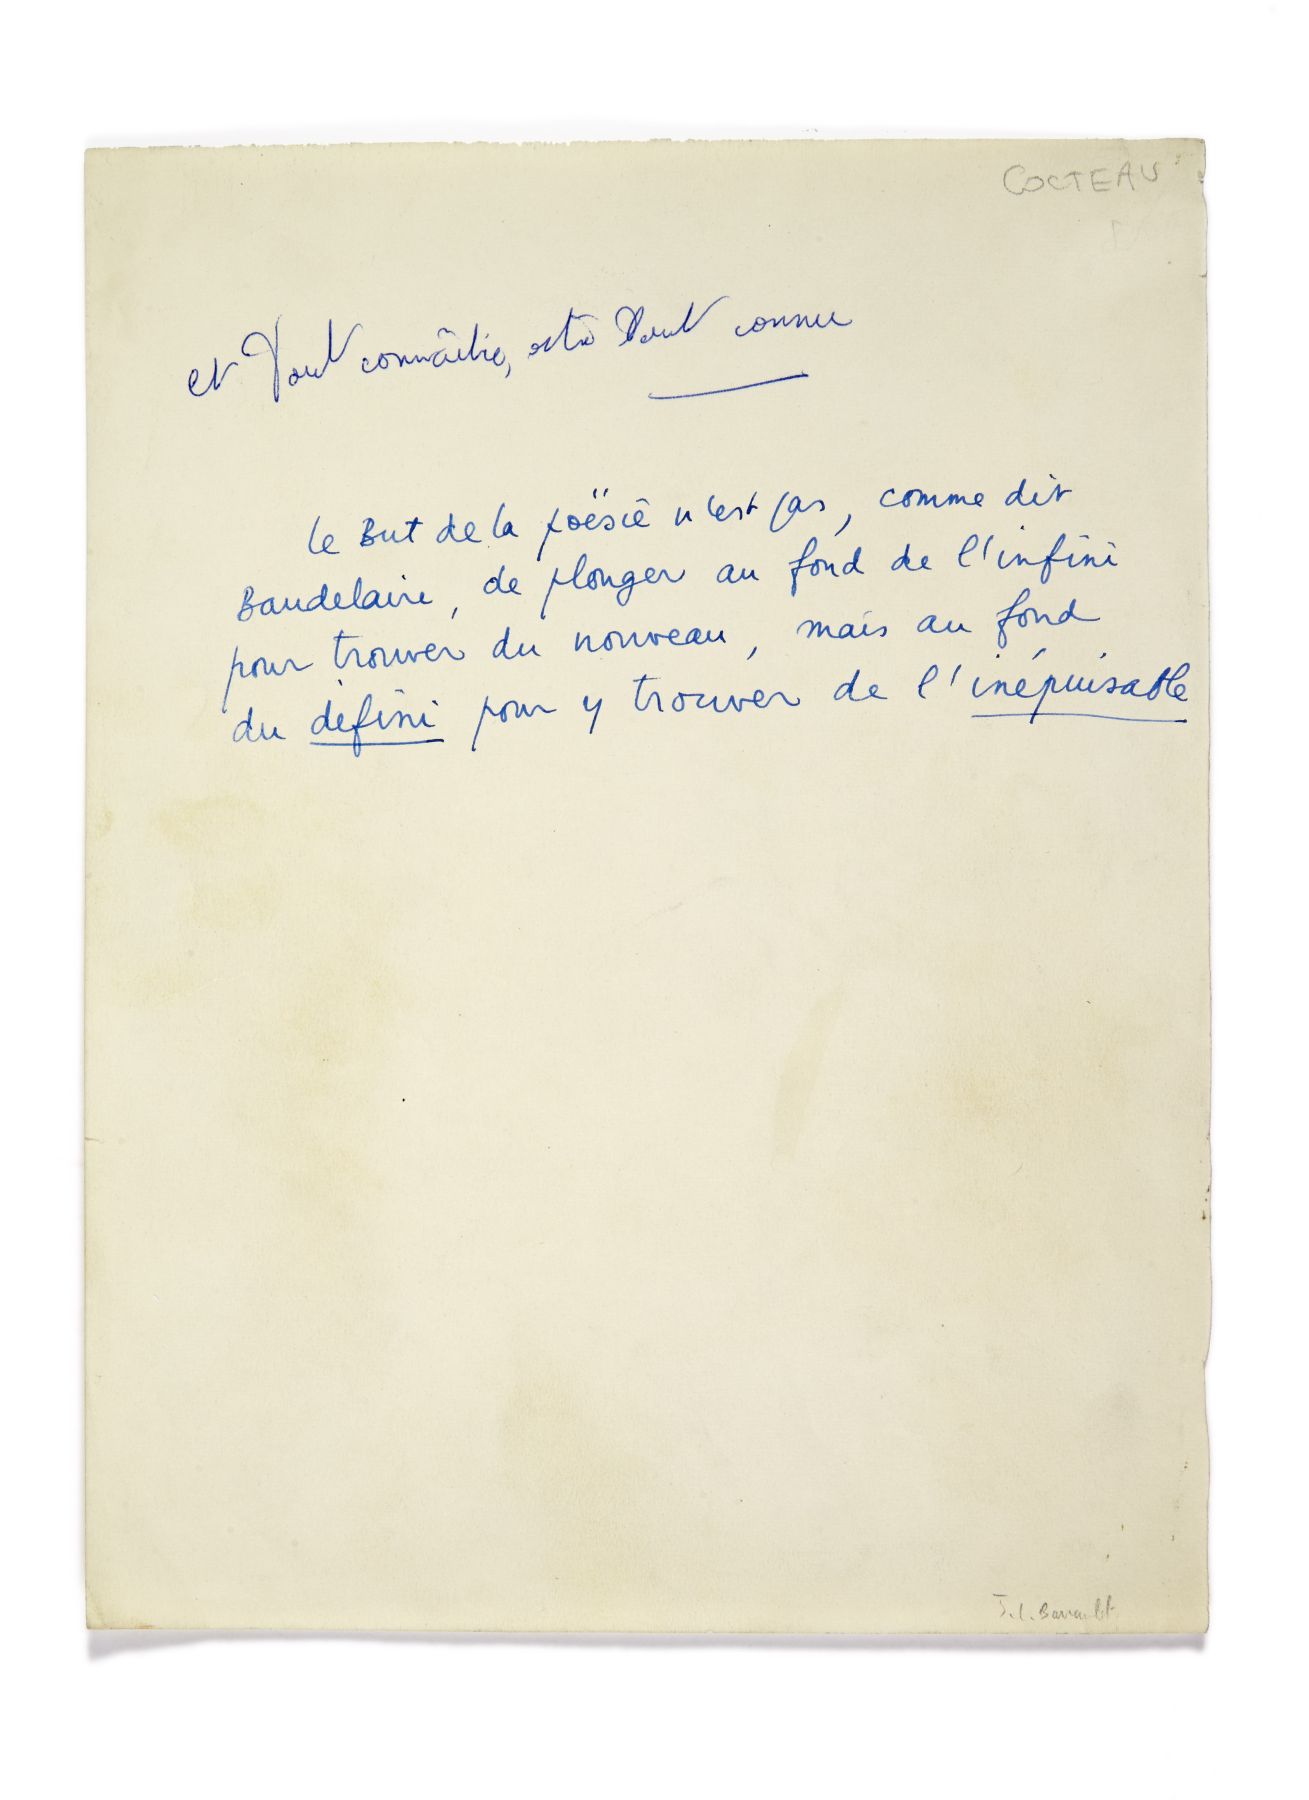 COCTEAU
et Tout connaître, Tout connu
le But de la poësie n'est pas, comme dit
Baudelaire, de plonger au fond de l'infini
pour trouver du nouveau, mais au fond
du défini pour y trouver de l'inépuisable
J. L. Barrault